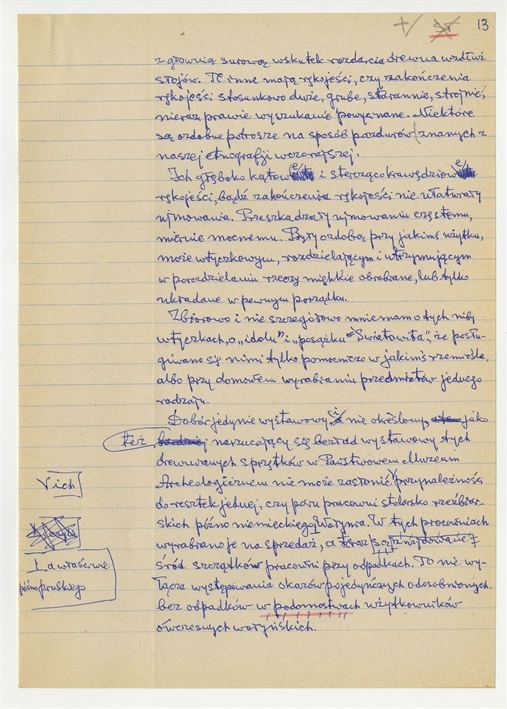 +/ 37 13
z głownią surową wskutek rozdarcia drewna wzdłuż
słojów. Te inne mają rękojeści, czy zakończenia
rękojeści stosunkowo duże, grube, starannie, strojnie,
nieraz prawie wyszukanie powycinane. Niektóre
są ozdobne potrosze na sposób pazdurów znanych z
naszej etnografji wczorajszej.
Ich głęboko kątowe i stercząco krawędziowe
rękojeści, bądź zakończenia rękojeści nie ułatwiały
ujmowania. Przeszkadzały ujmowaniu częstemu,
miernie mocnemu. Były ozdobą przy jakimś użytku,
może wtyczkowym, rozdzielającym i utrzymującym
w porozdzielaniu rzeczy miękkie obrabiane, lub tylko
układane w pewnym porządku.
Zbiorowo i nie szczegółowo mniemam o tych niby
wtyczkach, o „idolu" i „posążku = Światowita", że posłu-
giwano się nimi tylko pomocniczo w jakimś rzemiośle,
albo przy domowem wyrabianiu przedmiotów jednego
rodzaju.
Dobór jedynie wystawowy i nie określony jako
też, bardziej narzucający się bezład wystawowy tych
drewnianych sprzętków w Państwowem Muzeum
Archeologicznem nie może zasłonić przynależności
Vich
do resztek jednej, czy paru pracowni stolarsko rzeźbiar-
skich późno niemieckiego Wolyna. W tych pracowniach
wyrabiano je na sprzedaż, a teraz są znajdowane
Ławościowe
śród szczątków pracowni przy odpadkach. To nie wy-
późnopruskiego
łącza występowania okazów pojedyńczych odosobnionych,
bez odpadków w podomostwach użytkowników
ówczesnych wolyńskich.